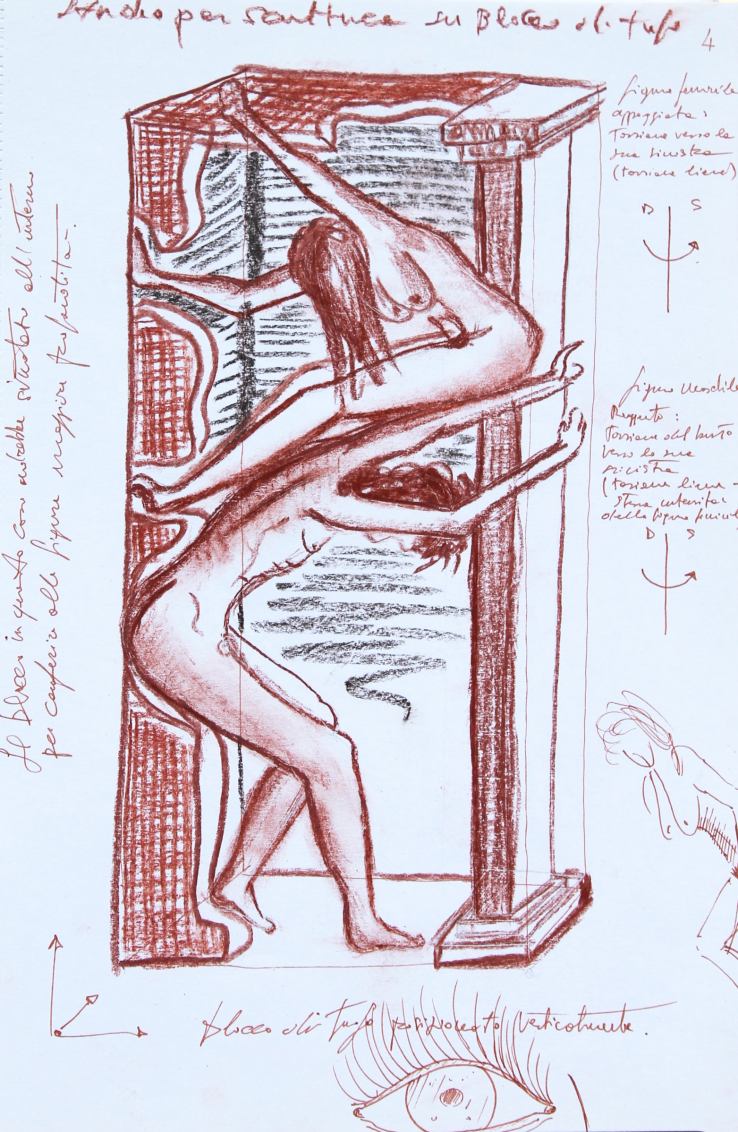 Studio per scultura su Blocco di tufo
4
figura
appoggiata:
Torsione verso la
sua sinistra
(torsione lieve)
D S
figura maschile
Torsione del busto
verso la sua
(torsione lieve -
stessa intensità
della figura
D S
Il blocco in questo caso svuotato all'interno
per conferire alle figure maggior
blocco di Tufo posizionato verticalmente.